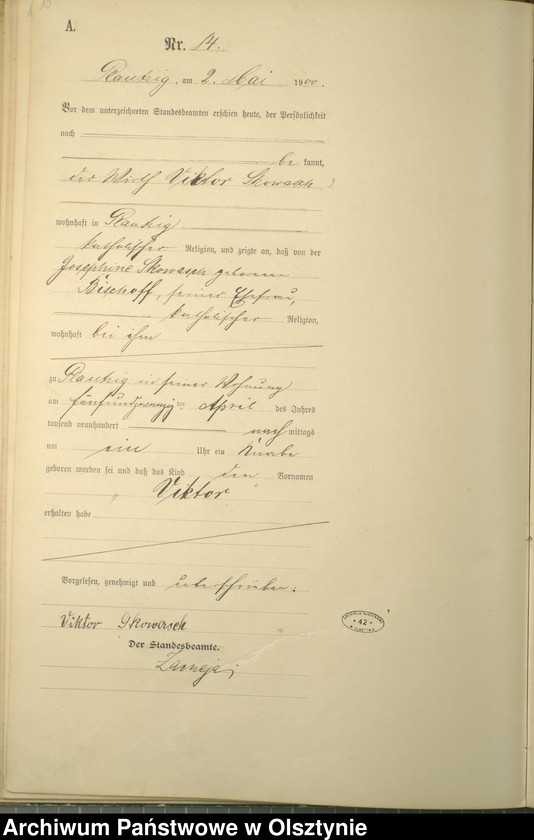 A.
Nr. 14.
Plautzig, am 2. Mai 1900.
Vor dem unterzeichneten Standesbeamten erschien heute, der Persönlichkeit
nach
be kannt,
der Wirth Viktor Skowasch
wohnhaft in Plautzig
katholischer Religion, und zeigte an, daß von der
Josephine Skowasch geborenen
Bischoff, seiner Ehefrau,
katholischer Religion,
wohnhaft bei ihm
zu Plautzig in seiner Wohnung
am fünfundzwanzigsten April des Jahres
tausend neunhundert nach mittags
um ein Uhr ein Knabe
geboren worden sei und daß das Kind den Vornamen
Viktor
erhalten habe
Vorgelesen, genehmigt und unterschrieben.
Viktor Skowasch
Der Standesbeamte.
42
Archiwum Państwowe w Olsztynie